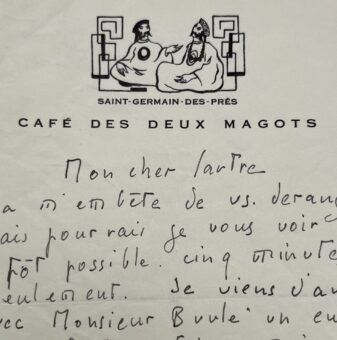 SAINT-GERMAIN-DES-PRÉS
CAFÉ DES DEUX MAGOTS
Mon cher Sartre
a m'embète de vs. derang
ais pourrais je vous voir
tôt possible. cinq minute
eulement. Je viens d'a
vec Monsieur un eu